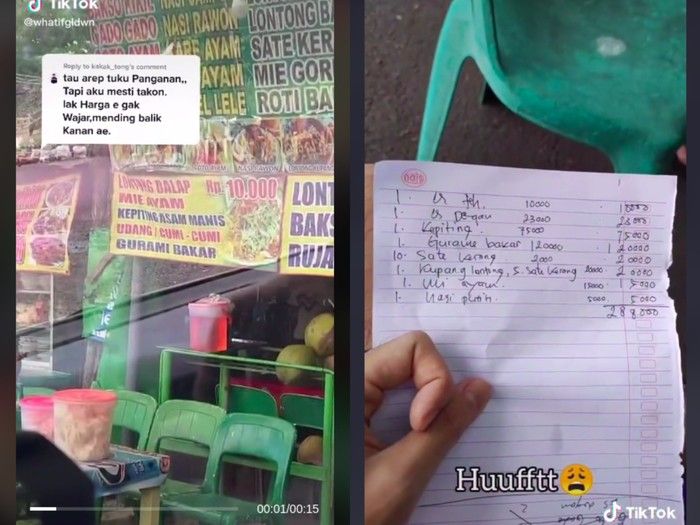 TikTok
@whatifgldwn
Reply to kakak_tong's comment
tau arep tuku Panganan,,
Tapi aku mesti takon.
lak Harga e gak
Wajar,mending balik
Kanan ae.
BAKSO KIKIL NASI
GADO GADO NASI RAWON
SOTO AYAM
ARE AYAM
EL LELE
LONTONG
BAKSO
SATE KER
MIE GOR
ROTI BA
SOTO AYAM NASI RAWON
LONTONG BALAP Rp. 10.000
MIE AYAM
KEPITING ASAM MANIS
UDANG / CUMI - CUMI
GURAMI BAKAR
LONT
BAKS
RUJA
00:01/00:15
1. Es teh 10000 10000
1. Es Degan 23000 23000
1. Kepiting 75000 75000
1. Gurame bakar 120000 120000
10. Sate kerang 2000 20000
1. Kupang lontong, 5. Sate kerang 20000 20000
1. Mi ayam 15000 15000
1. Nasi putih 5000 5000
288.000
Huufftt
TikTok